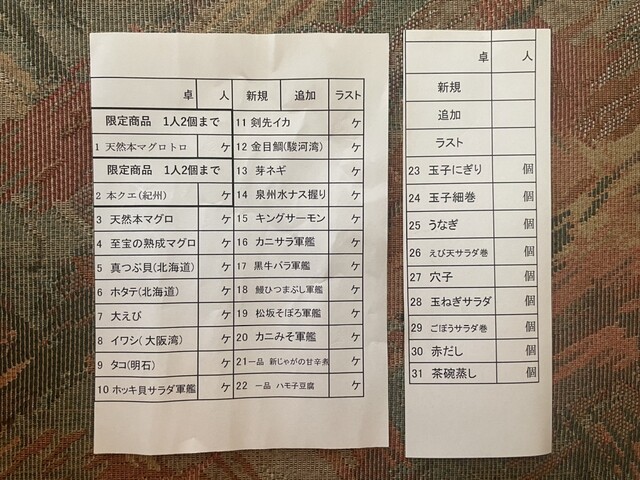 卓 人 新規 追加 ラスト
限定商品 1人2個まで 11 剣先イカ ケ
1 天然本マグロトロ ケ 12 金目鯛(駿河湾) ケ
限定商品 1人2個まで 13 芽ネギ ケ
2 本クエ(紀州) ケ 14 泉州水ナス握り ケ
3 天然本マグロ ケ 15 キングサーモン ケ
4 至宝の熟成マグロ ケ 16 カニサラ軍艦 ケ
5 真つぶ貝(北海道) ケ 17 黒牛バラ軍艦 ケ
6 ホタテ(北海道) ケ 18 鰻ひつまぶし軍艦 ケ
7 大えび ケ 19 松坂そぼろ軍艦 ケ
8 イワシ(大阪湾) ケ 20 カニみそ軍艦 ケ
9 タコ(明石) ケ 21 一品 新じゃがの甘辛煮 ケ
10 ホッキ貝サラダ軍艦 ケ 22 一品 ハモ子豆腐 ケ
卓 人
新規
追加
ラスト
23 玉子にぎり 個
24 玉子細巻 個
25 うなぎ 個
26 えび天サラダ巻 個
27 穴子 個
28 玉ねぎサラダ 個
29 ごぼうサラダ巻 個
30 赤だし 個
31 茶碗蒸し 個